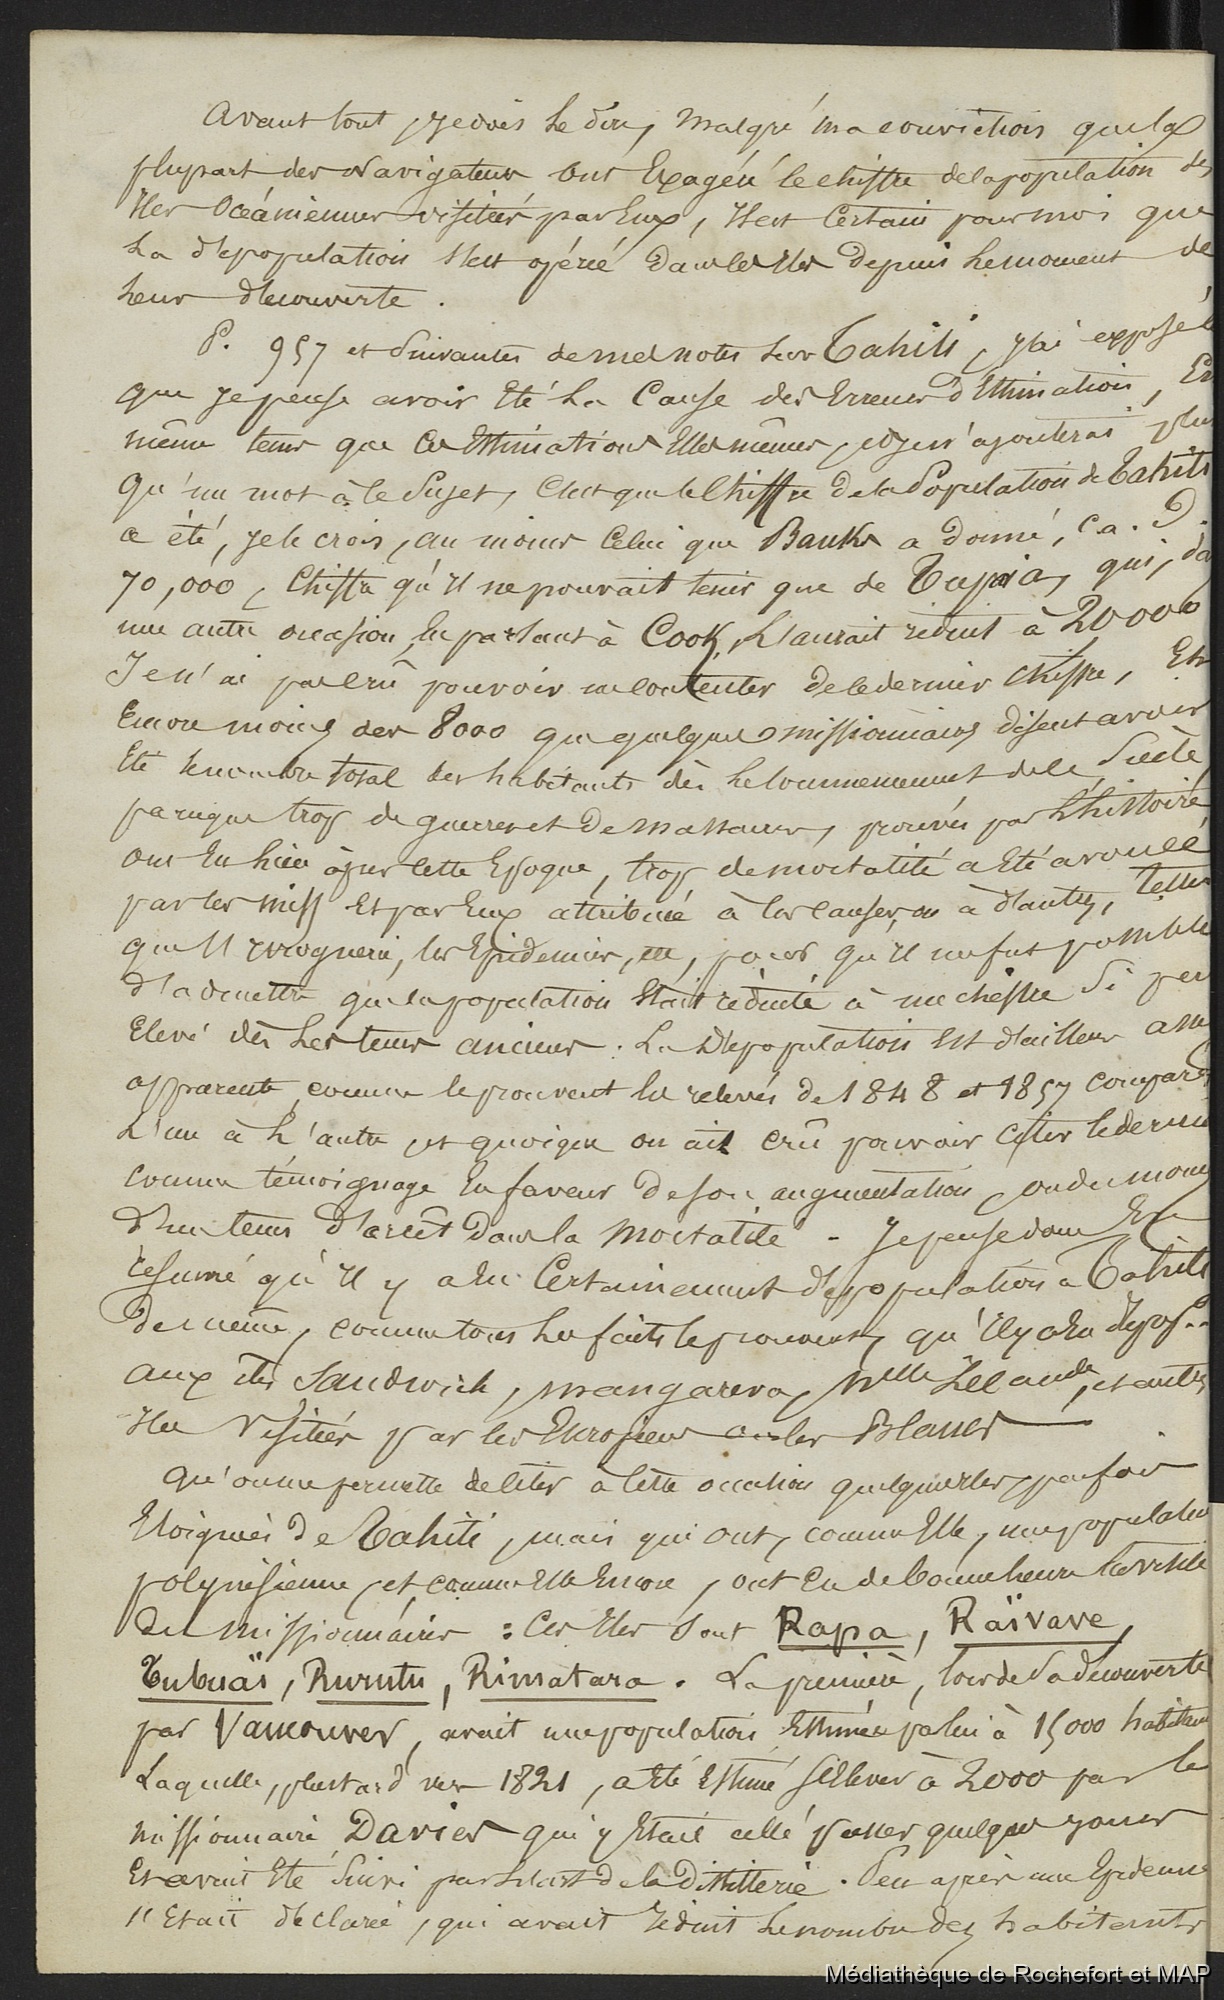 Avant tout, je dois le dire, malgré ma conviction que la
plupart des Navigateurs ont Exagéré le chiffre de la population des
Iles Océaniennes visitées par Eux, Il est Certain pour moi que
La dépopulation s'est opérée dans les Iles depuis le moment de
leur découverte.
P. 957 et Suivantes de mes notes sur Tahiti, j'ai exposé ce
que je pense avoir Eté La Cause des Erreurs d'Estimation, En
même tems que Ces Estimations Elles mêmes, et je n'ajouterai plus
qu'un mot à ce Sujet, C'est que le Chiffre de la Population de Tahiti
a été, je le crois, au moins Celui que Banks a Donné, C. a. D.
70,000, Chiffre qu'Il ne pouvait tenir que de Tupaia, qui, dans
une autre occasion, En parlant à Cook, L'aurait réduit à 20000
Je n'ai pas Crû pouvoir me Contenter de Ce dernier Chiffre, Et
Encore moins des 8000 que quelques missionnaires disent avoir
Eté le nombre total des habitants dès Le Commencement de Ce Siècle,
parceque trop de guerres et De Massacres, prouvés par L'histoire
ont Eu Lieu après Cette Epoque, trop de mortalité a Eté avouée
par les Miss Et par Eux attribuée à Ces Causes, ou à d'autres, telles
que L'Ivrognerie, les Epidemies, etc, pour qu'Il me fut possible
d'admettre que la population Etait réduite à un chiffre Si peu
Elevé dès Les tems anciens. La Dépopulation Est d'ailleurs assez
apparente, comme le prouvent les relevés de 1848 et 1857 comparés
L'un à L'autre, et quoique on ait crû pouvoir citer le dernier
comme témoignage En faveur de son augmentation, ou du moins
d'un tems d'arrêt Dans la Mortalité - Je pense donc En
résumé qu'Il y a Eu Certainement dépopulation à Tahiti
De même, comme tous Les faits le prouvent, qu'Il y a Eu dépop..
aux îles Sandwich, Mangareva, Nlle Zélande, et autres
Iles Visitées par les Européens ou les Blancs
Qu'on me permette de Citer à Cette occasion quelques Iles, parfois
Eloignées de Tahiti, mais qui ont, comme Elle, une population
polynésienne, et comme Elle Encore, ont Eu de bonne heure la visite
des missionnaires : Ces Iles Sont Rapa, Raïvave,
Tubuaï, Rurutu, Rimatara. La première, lors de Sa découverte
par Vancouver, avait une population Estimée par lui à 1500 habitans
Laquelle, plus tard vers 1821, a Eté Estimé s'Elever à 2000 par le
missionnaire Davies qui y Etait allé passer quelques jours
Et avait Eté Suivi par L'art de la Distillerie. Peu après une Epidemie
s'Etait déclarée, qui avait réduit Le nombre des habitants
Médiathèque de Rochefort et MAP